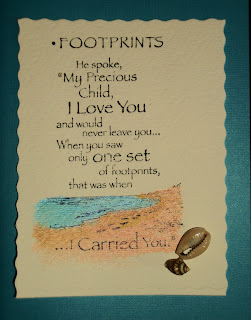 • FOOTPRINTS
He spoke,
"My Precious
Child,
I Love You
and would
never leave you...
When you saw
only one set
of footprints,
that was when
...I Carried You."